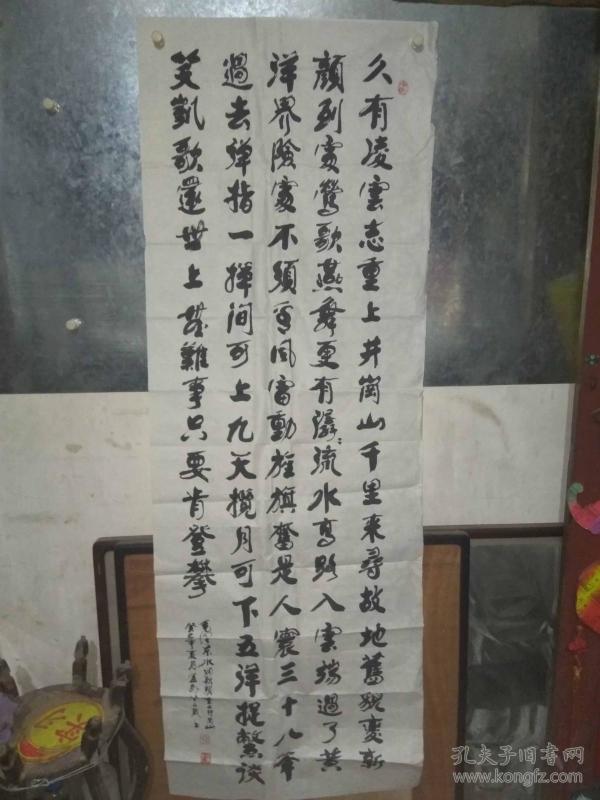 久有凌雲志重上井崗山千里來尋故地舊貌變新
顏到處鶯歌燕舞更有潺〻流水高路入雲端過了黄
洋界險處不須看風雷動旌旗奮是人寰三十八年
過去弹指一揮间可上九天攬月可下五洋捉鱉談
笑凱歌還世上無難事只要肯登攀
孔夫子旧書网
www.kongfz.com